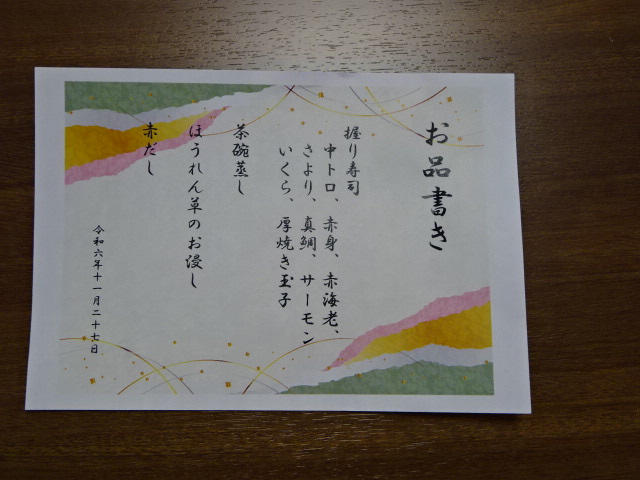 お品書き
握り寿司
中トロ、赤身、赤海老、
さより、真鯛、サーモン
いくら、厚焼き玉子
茶碗蒸し
ほうれん草のお浸し
赤だし
令和六年十一月二十七日